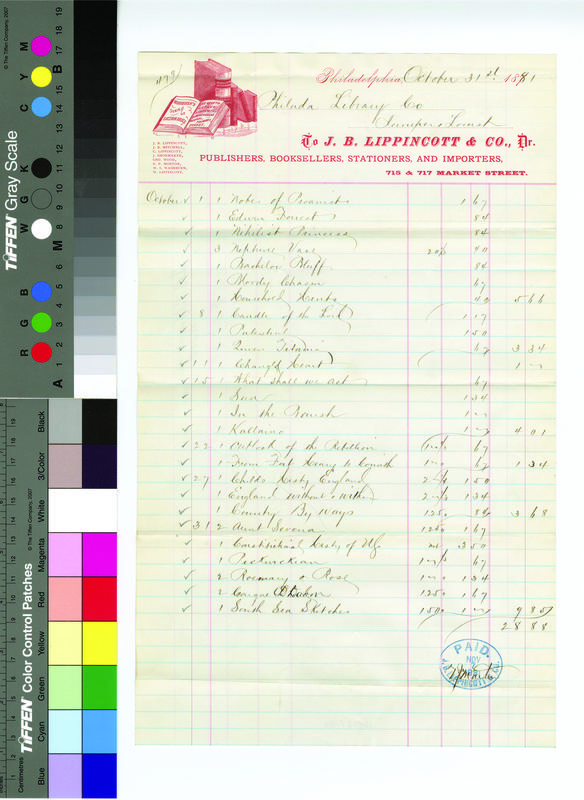 Philadelphia, October 31st 1881
Philada Library Co
Juniper & Locust
To J. B. LIPPINCOTT & CO., Dr.
PUBLISHERS, BOOKSELLERS, STATIONERS, AND IMPORTERS,
715 & 717 MARKET STREET.
J. B. LIPPINCOTT,
October 1 1 Notes of 1 67
1 Edwin Forrest 84
1 Nihilist Princess 84
3 Neptune Vase 20%
1 Bachelor Bluff 84
1 Bloody Chasm 67
1 Household Hints 5 66
8 1 Candle of the Lord 1 17
1 Palestine 1 50
1 Queen Titania 67 3 34
11 1 Changed Heart
15 1 What shall we act 67
1 1 34
1 In the
1 4 01
22 1 Outlook of the 67
1 From Fort Henry to Corinth 67 1 34
27 1 Childs Histy England 1 50
1 England without & within 1 34
1 Country By Ways 1250 84 3 68
31 2 Aunt Serena 1250 1 67
1 Constitutional Histy of US. 3 50
1 67
2 Rosemary & Rose 1 34
2 1250 1 67
1 South Sea Sketches 1500 9 85
28 88
PAID.
NOV
J. B. LIPPINCOTT & CO.
TIFFEN® Gray Scale
© The Tiffen Company, 2007
R G B W G K C Y M
A 1 2 3 4 5 6 M 8 9 10 11 12 13 14 15 B 17 18 19
TIFFEN® Color Control Patches
© The Tiffen Company, 2007
Centimetres
Blue Cyan Green Yellow Red Magenta White 3/Color Black